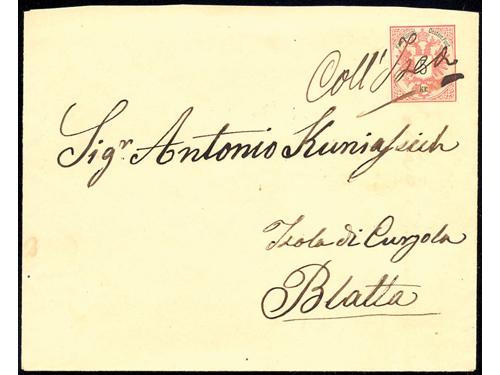 Coll'
Sigr Antonio Kuniassich
Isola di Curzola
Blatta